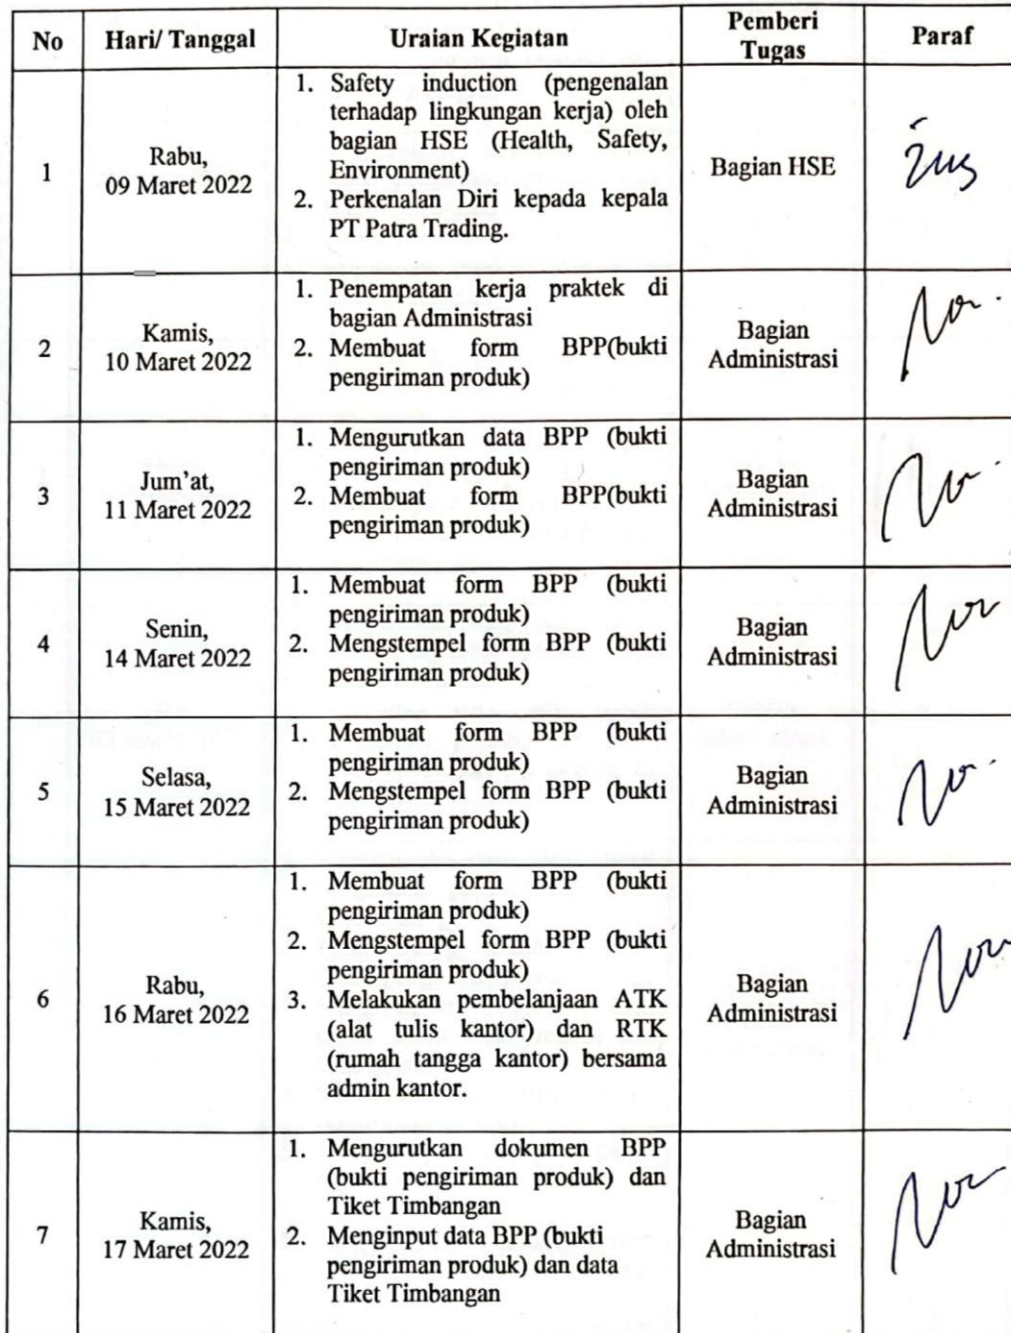 No Hari/ Tanggal Uraian Kegiatan Pemberi Tugas Paraf
1
Rabu,
09 Maret 2022
1. Safety induction (pengenalan
terhadap lingkungan kerja) oleh
bagian HSE (Health, Safety,
Environment)
2. Perkenalan Diri kepada kepala
PT Patra Trading.
Bagian HSE
2
Kamis,
10 Maret 2022
1. Penempatan kerja praktek di
bagian Administrasi
2. Membuat form BPP(bukti
pengiriman produk)
Bagian
Administrasi
3
Jum'at,
11 Maret 2022
1. Mengurutkan data BPP (bukti
pengiriman produk)
2. Membuat form BPP(bukti
pengiriman produk)
Bagian
Administrasi
4
Senin,
14 Maret 2022
1. Membuat form BPP (bukti
pengiriman produk)
2. Mengstempel form BPP (bukti
pengiriman produk)
Bagian
Administrasi
5
Selasa,
15 Maret 2022
1. Membuat form BPP (bukti
pengiriman produk)
2. Mengstempel form BPP (bukti
pengiriman produk)
Bagian
Administrasi
6
Rabu,
16 Maret 2022
1. Membuat form BPP (bukti
pengiriman produk)
2. Mengstempel form BPP (bukti
pengiriman produk)
3. Melakukan pembelanjaan ATK
(alat tulis kantor) dan RTK
(rumah tangga kantor) bersama
admin kantor.
Bagian
Administrasi
7
Kamis,
17 Maret 2022
1. Mengurutkan dokumen BPP
(bukti pengiriman produk) dan
Tiket Timbangan
2. Menginput data BPP (bukti
pengiriman produk) dan data
Tiket Timbangan
Bagian
Administrasi